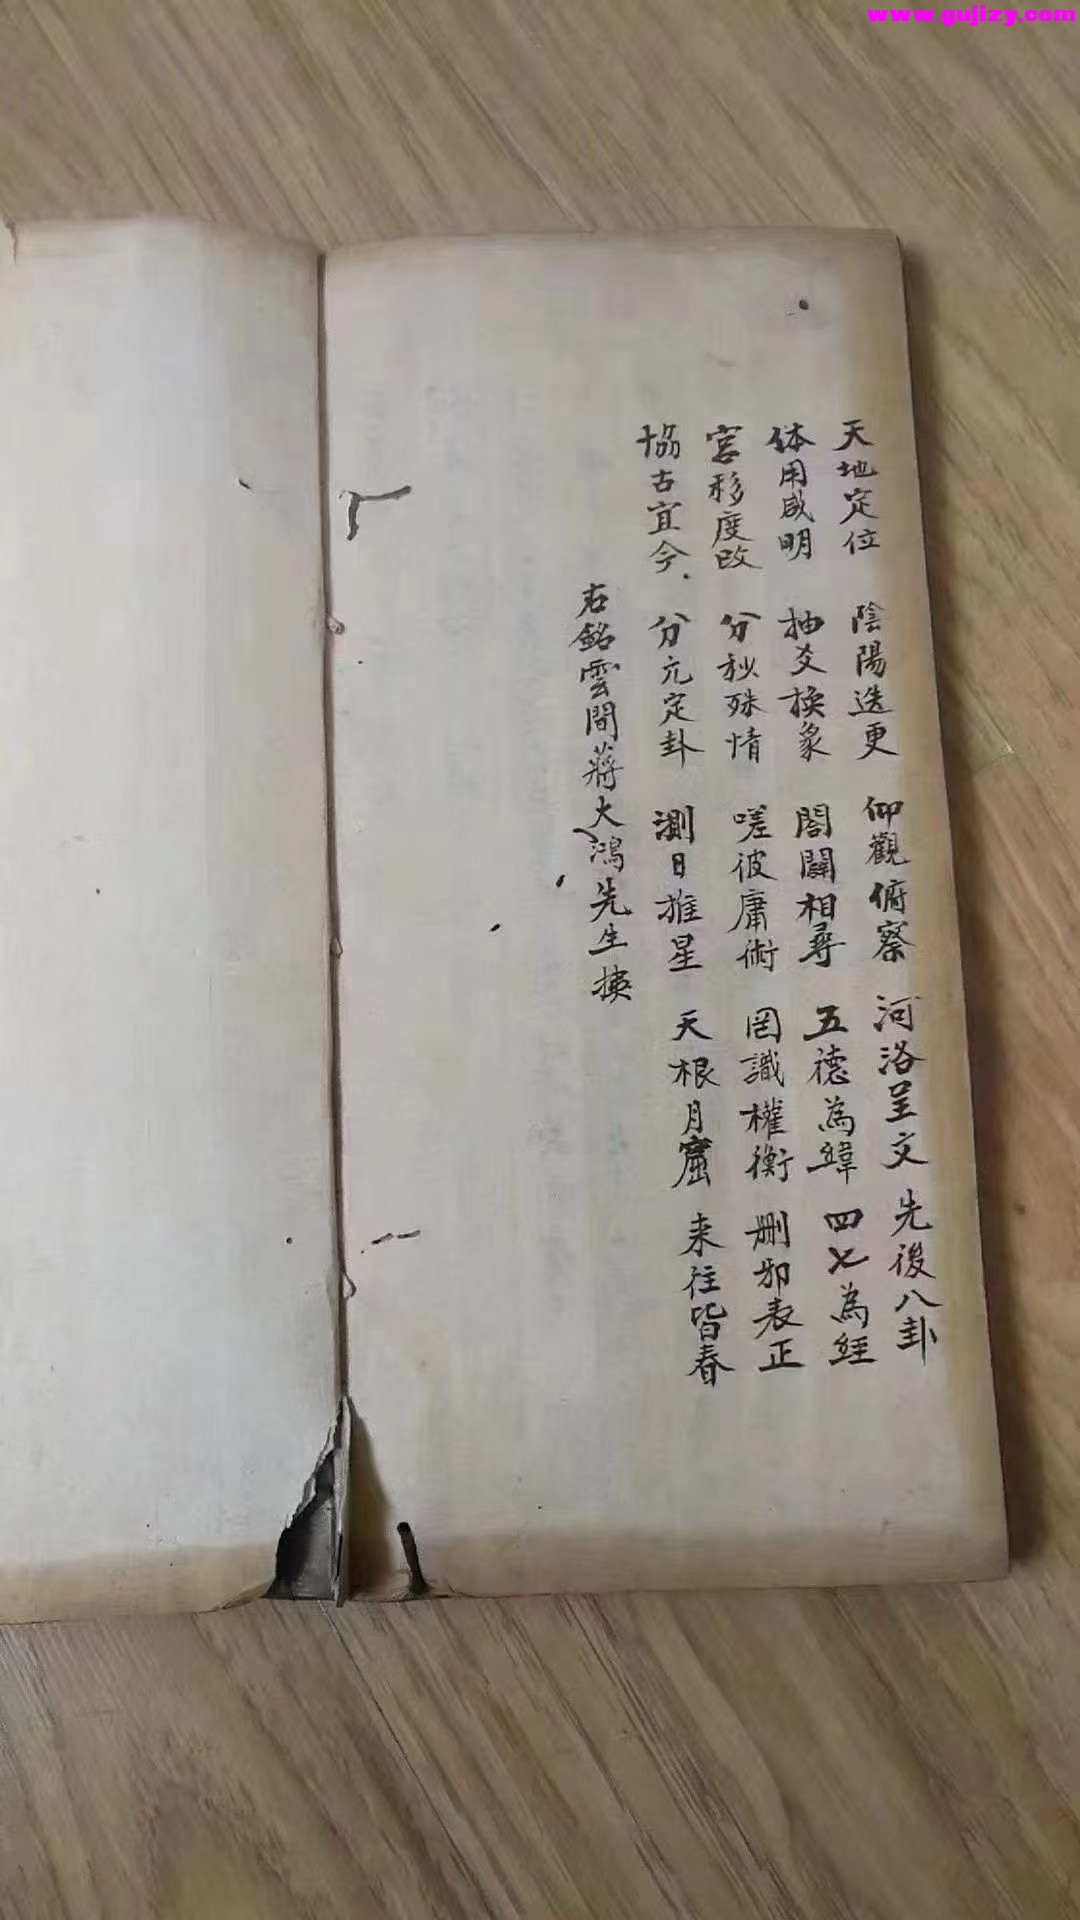 www.gujizy.com
天地定位 陰陽迭更 仰觀俯察 河洛呈文 先後八卦
体用咸明 抽爻換象 閤闢相尋 五德為緯 四七為經
宮移度改 分秋殊情 嗟彼庸術 罔識權衡 删邪表正
協古宜今 分元定卦 測日推星 天根月窟 来往皆春
右銘雲間蔣大鴻先生